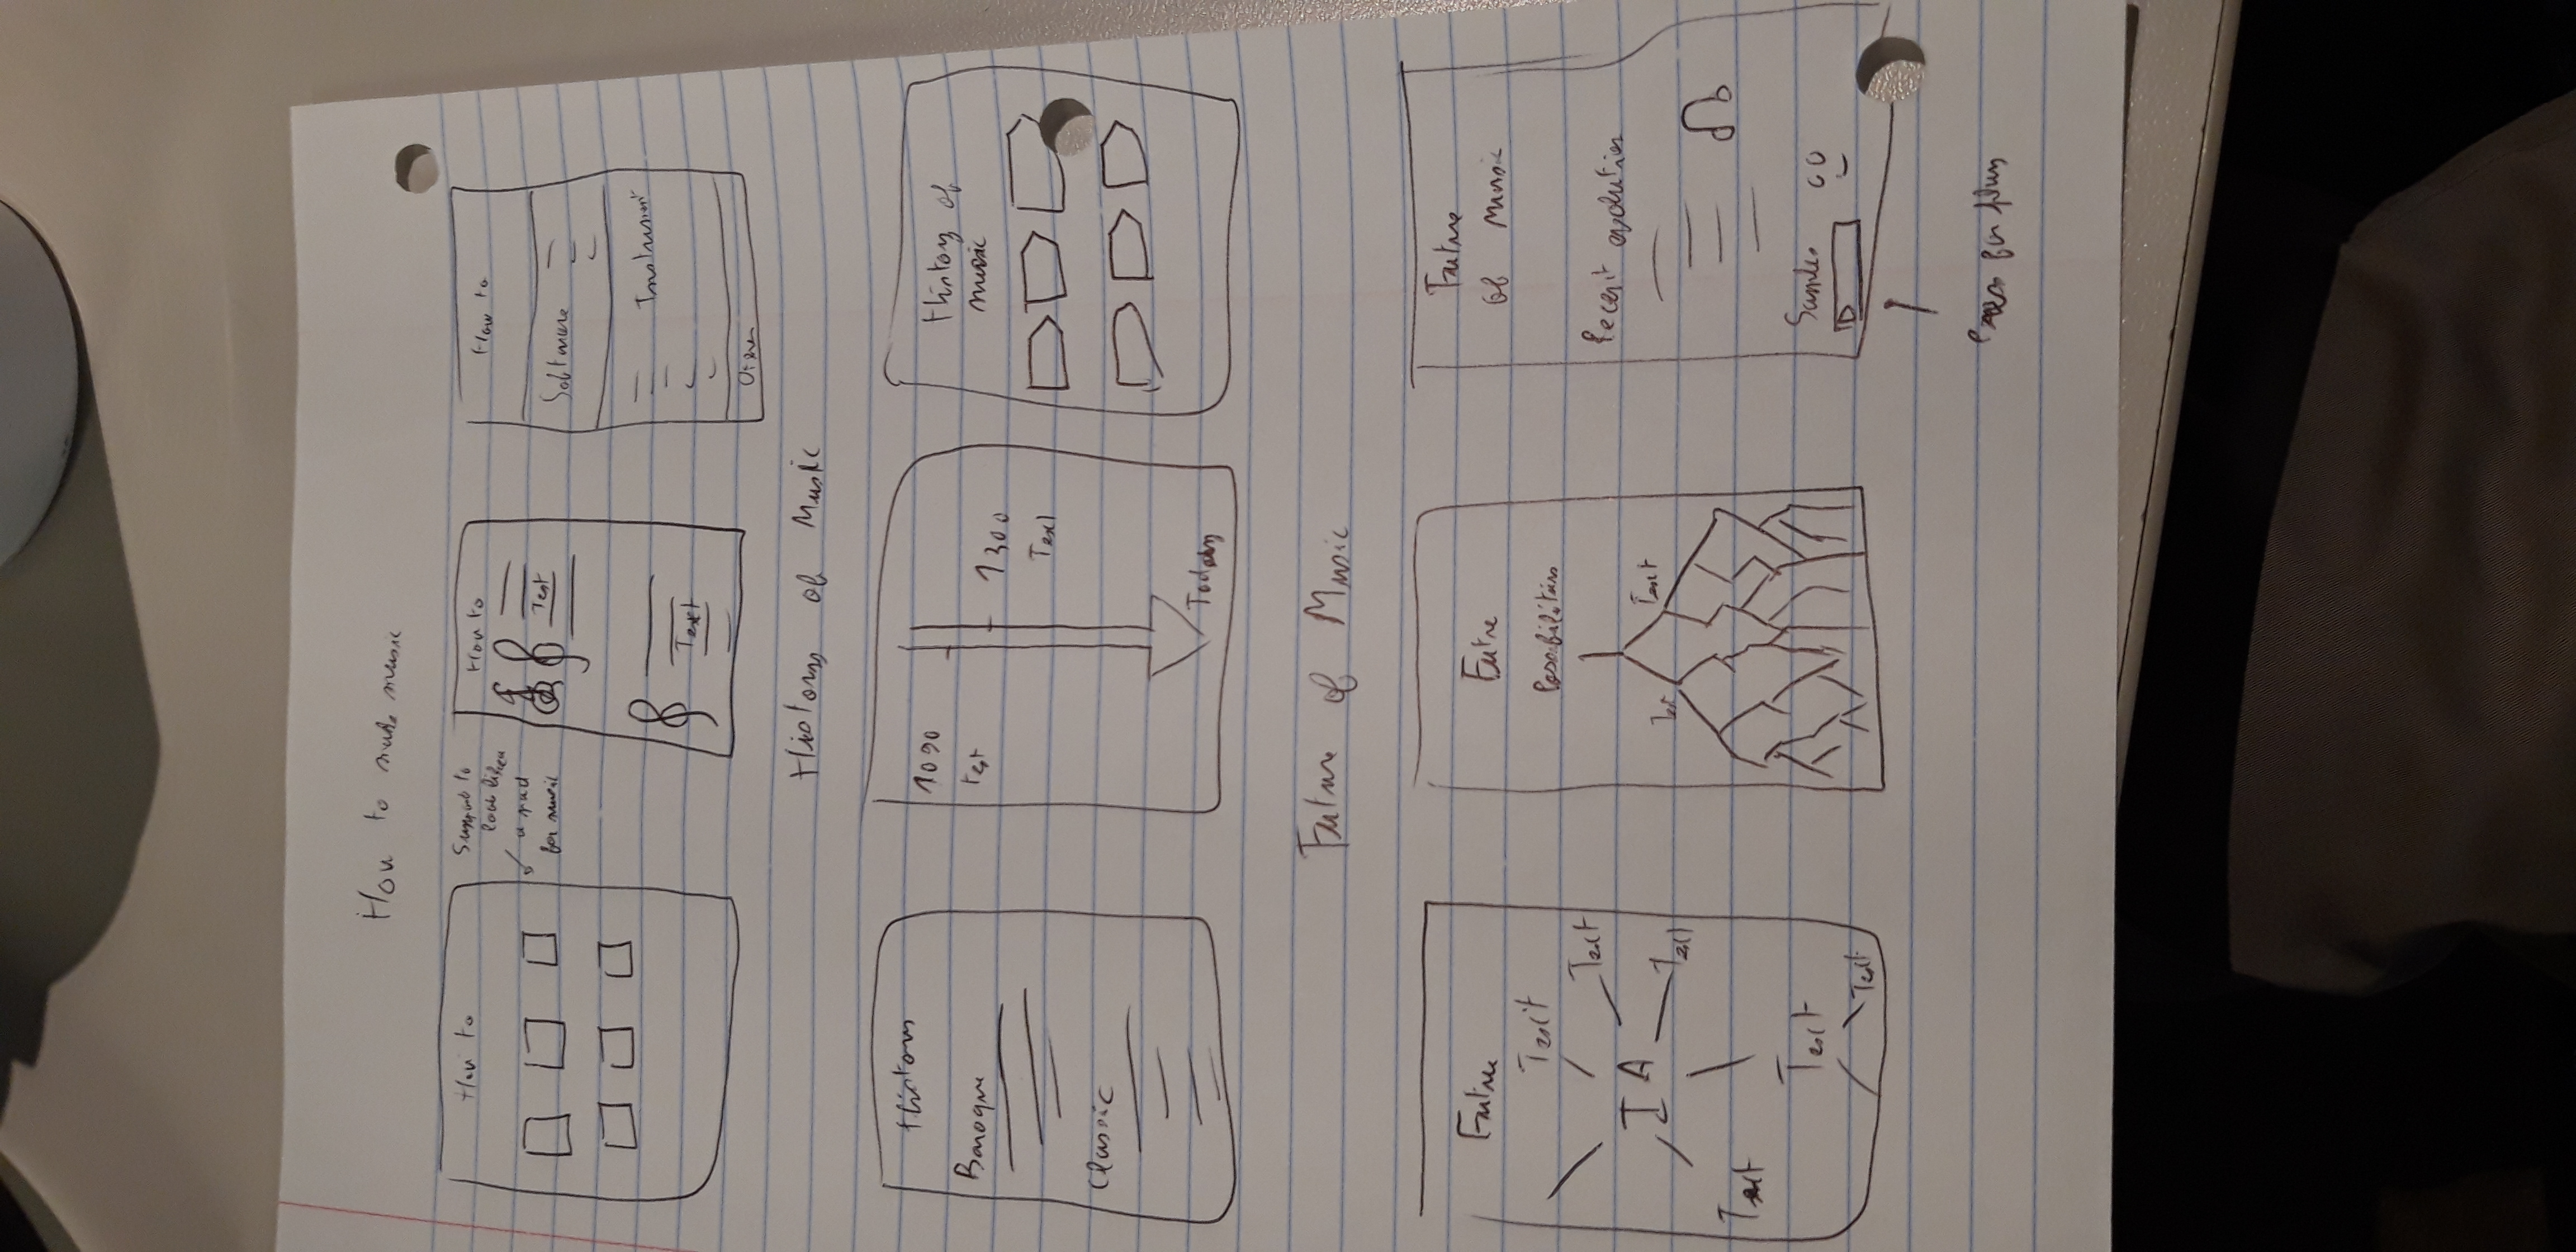 How to make music
How to
Suppose to
look like
a pad
for music
How to
Text
Text
How to
Software
Instrument
History of Music
History
Baroque
Classic
1090
Text
1300
Text
Today
History of
music
Future of Music
Future
Text
Text
IA
Text
Text
Text
Text
Futre
Possibilities
Text
Text
Future
of music
Recent evolution
Samples
Press for play